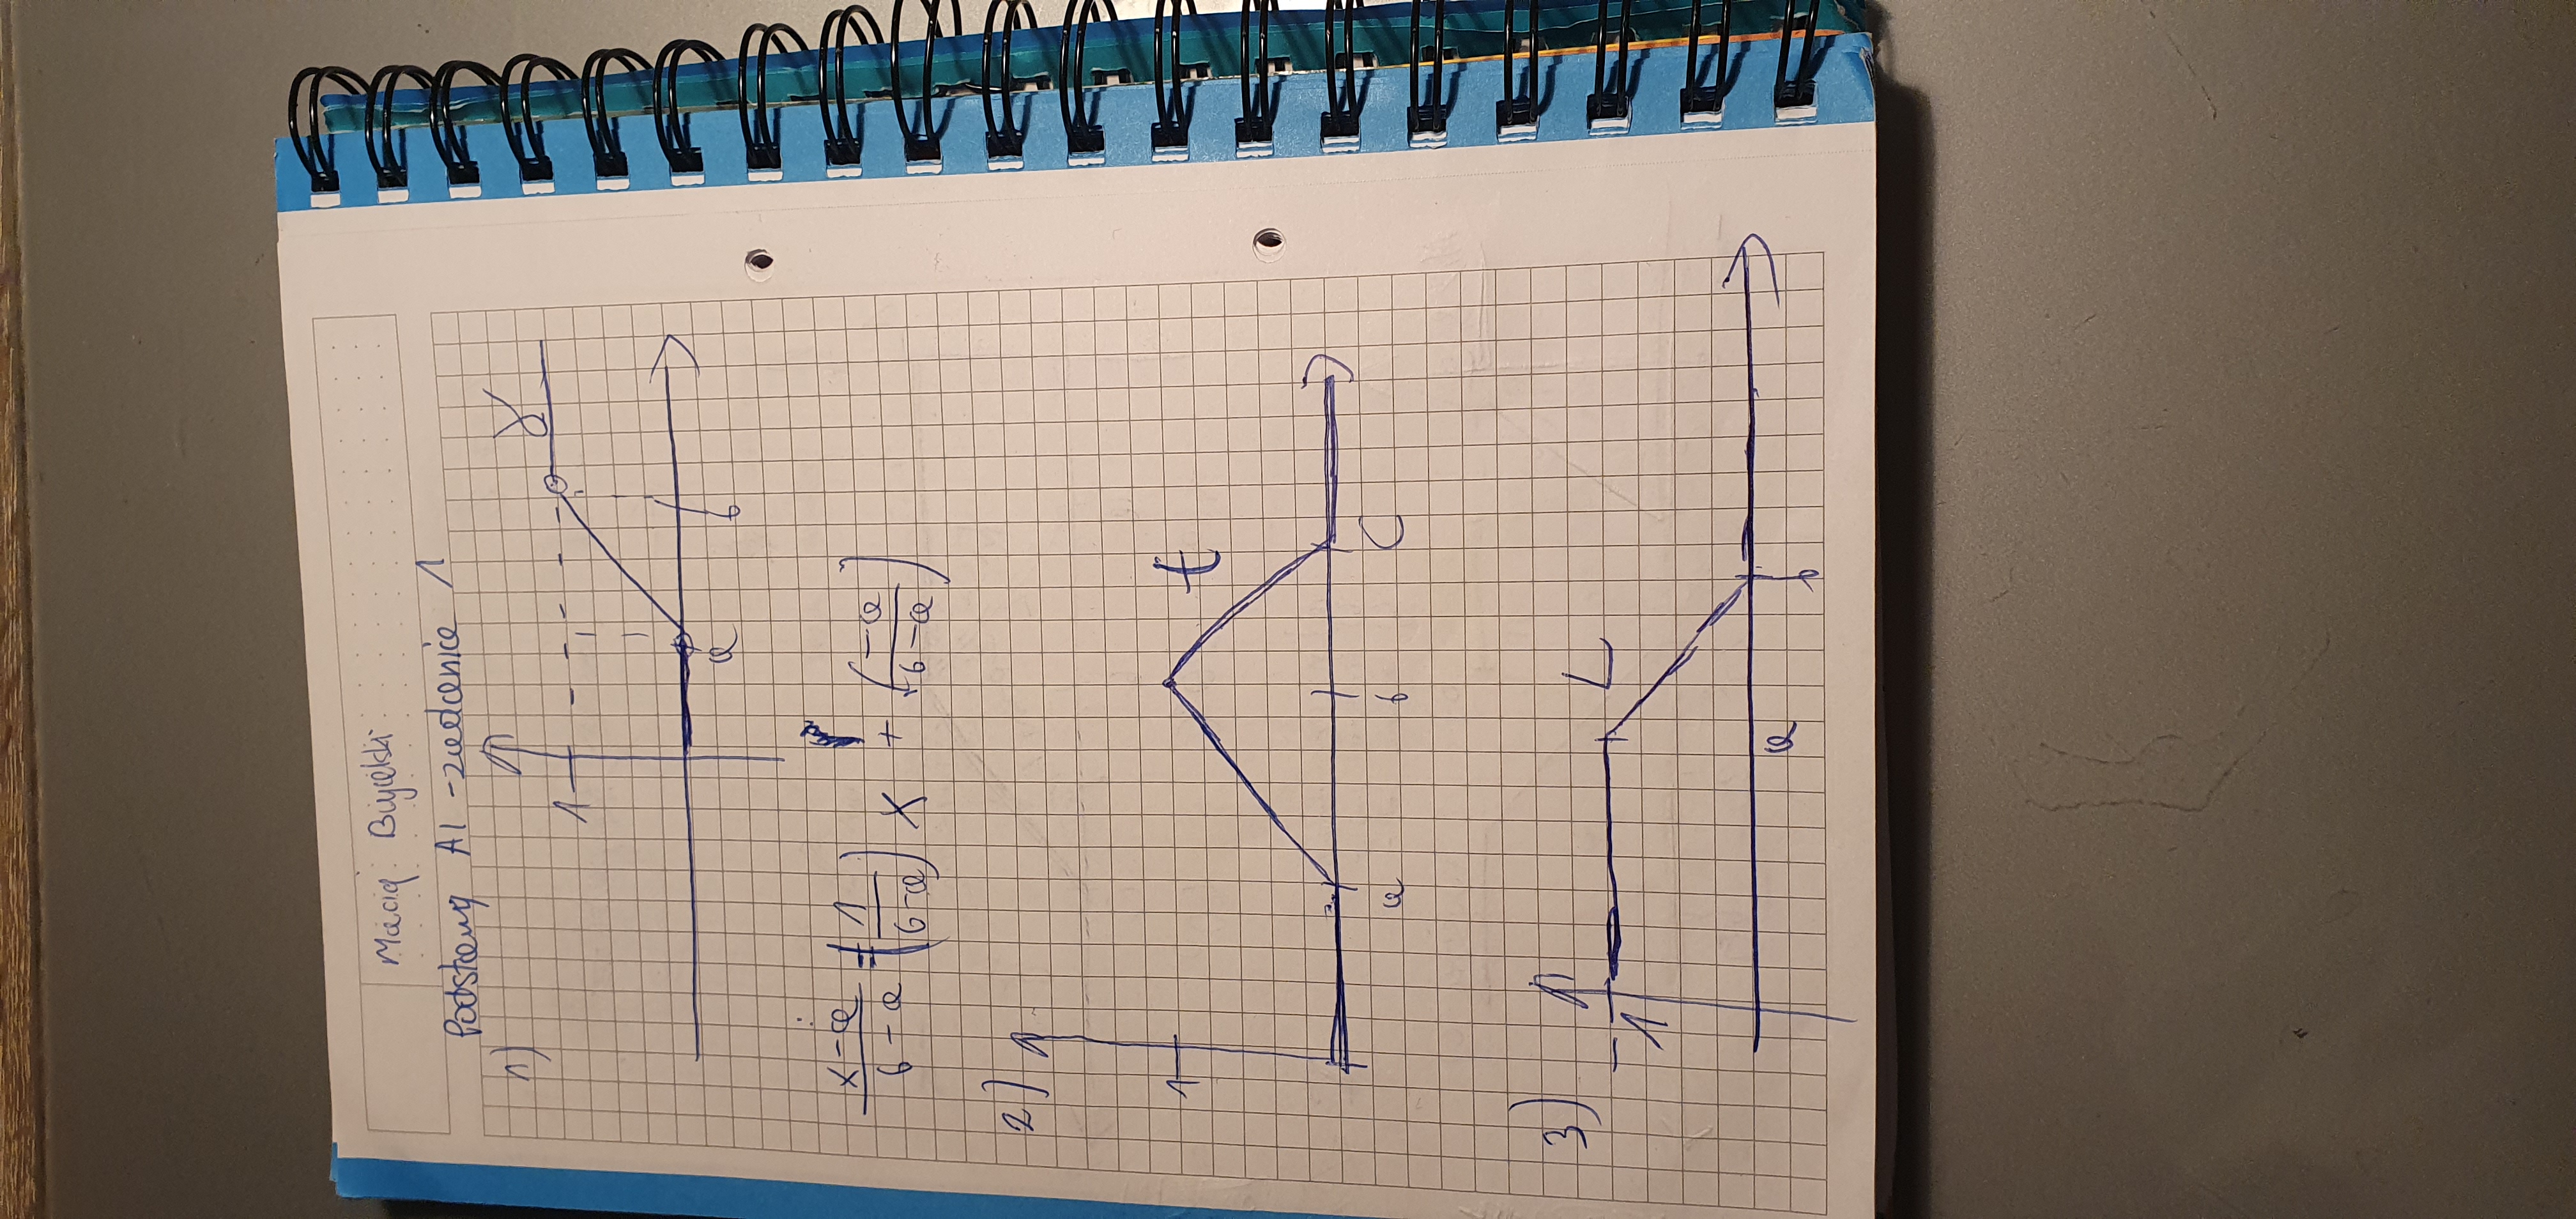 Maciej Bujalski
Podstawy AI - zadanie 1
1)
1
γ
a
b
x-a / b-a = (1 / b-a) x + (-a / b-a)
2)
1
t
a b c
3)
1
L
a
b